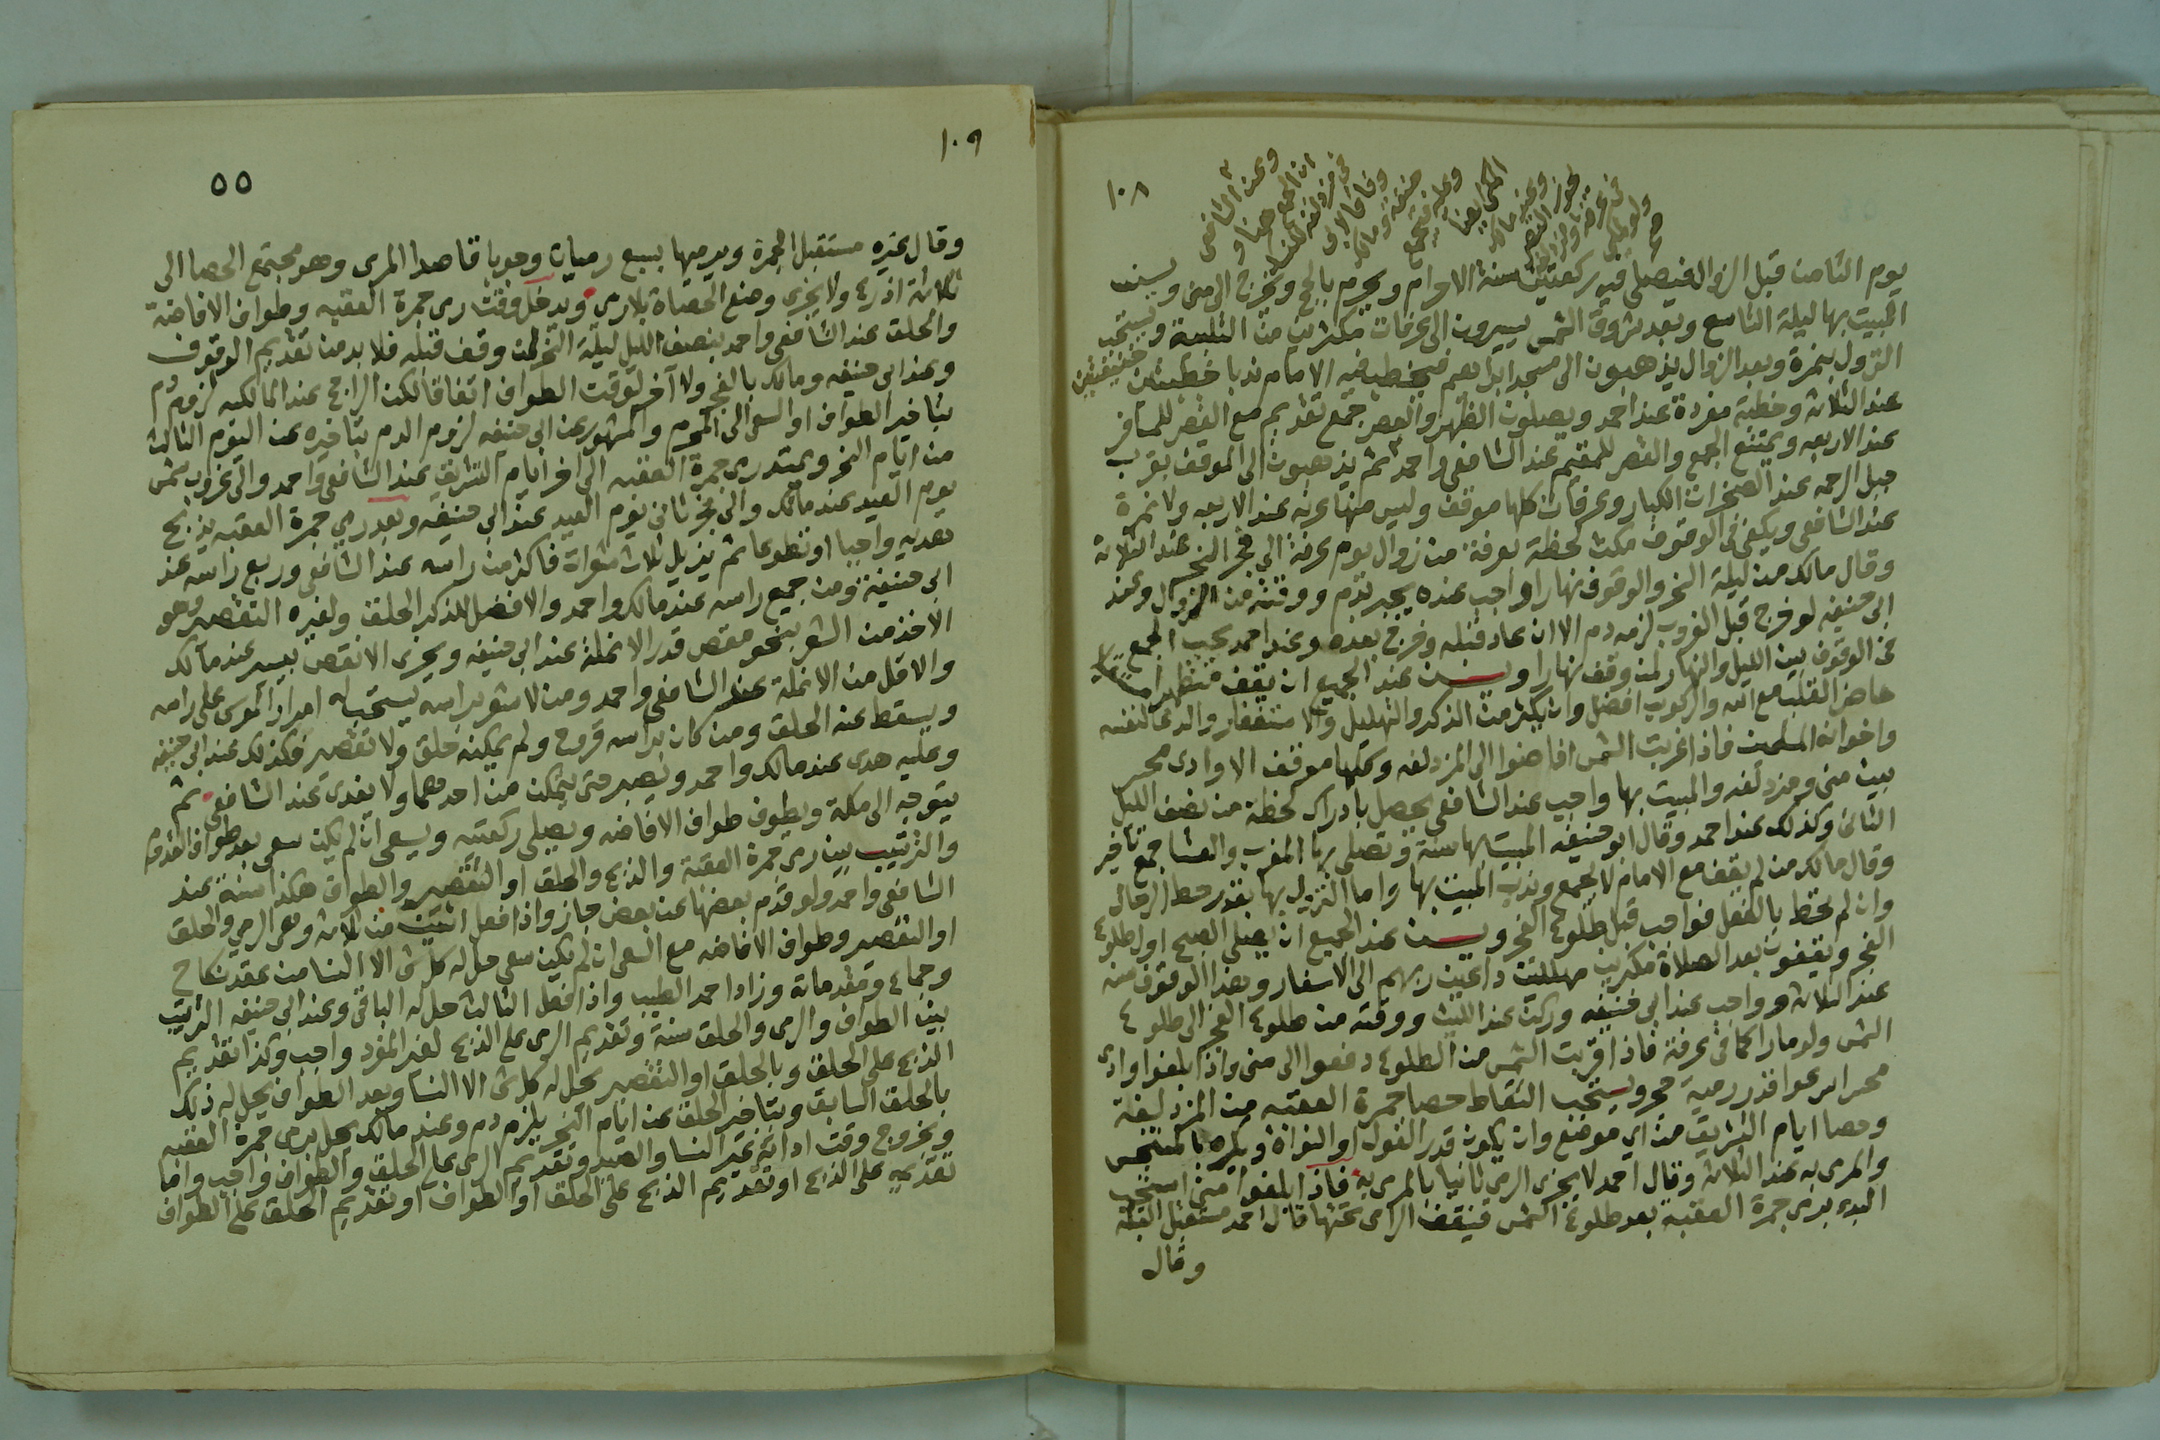 ١٠٨
يوم الثامن قبل الزوال فيصلي فيه ركعتين سنة الاحرام ويحرم بالحج وتخرج الى منى ويسن
المبيت بها ليلة التاسع وبعد شروق الشمس يسيرون الى عرفات مكثرين من التلبية ويستحب
النزول بنمرة وبعد الزوال يذهبون الى مسجد ابراهيم فيخطب فيه الامام ندبا خطبتين خفيفتين
عند الثلاثة وخطبة مفردة عند احمد ويصلون الظهر والعصر جمع تقديم مع القصر للمسافر
عند الاربعه ويمتنع الجمع والقصر للمقيم عند الشافعي واحمد ثم يذهبون الى الموقف بقرب
جبل الرحمه عند الصخرات الكبار وعرفات كلها موقف وليس منها عرنه عند الاربعه ولا نمرة
عند الشافعي ويكفي في الوقوف مكث لحظة بعرفة من زوال يوم عرفة الى فجر النحر عند الثلاثة
وقال مالك من ليلة النحر والوقوف نهارا واجب عنده يجبر بدم ووقته من الزوال وعند
ابى حنيفه لو خرج قبل الغروب لزمه دم الا ان عاد قبله وخرج بعده وعند احمد يجب الجمع
في الوقوف بين الليل والنهار لمن وقف نهارا ويسن عند الجميع ان يقف متطهرا
حاضر القلب مع الله والركوب افضل وان يكثر من الذكر والتهليل والاستغفار والدعا لنفسه
واخوانه المسلمين فاذا غربت الشمس افاضوا الى المزدلفه وكلها موقف الا وادى محسر
بين منى ومزدلفه والمبيت بها واجب عند الشافعي يحصل بادراك لحظة من نصف الليل
الثانى وكذلك عند احمد وقال ابو حنيفه المبيت بها سنة وتصلى بها المغرب والعشا جمع تاخير
وقال مالك من لم يقف مع الامام لا يجمع وندب المبيت بها واما النزول بها بقدر حط الرحال
وان لم تحط بالفعل فواجب قبل طلوع الفجر ويسن عند الجميع ان يصلى الصبح اول طلوع
الفجر ويقفون بعد الصلاة مكبرين مهللين داعين ربهم الى الاسفار وهذا الوقوف سنه
عند الثلاثه وواجب عند ابى حنيفه وركن عند الليث ووقته من طلوع الفجر الى طلوع
الشمس ولو مارا كما في عرفة فاذا قربت الشمس من الطلوع دفعوا الى منى واذا بلغوا وادى
محسر اسرعوا قدر رمية حجر ويستحب التقاط حصا جمرة العقبه من المزدلفة
وحصا ايام التشريق من اي موضع وان يكون قدر الفول او النواة ويكره بالمتنجس
والمرمى به عند الثلاثة وقال احمد لا يجزى الرمي ثانيا بالمرمى به فاذا بلغوا منى استحب
البدء برمى جمرة العقبة بعد طلوع الشمس فيقف الرامى تحتها قال احمد مستقبل القبلة
وقال
١٠٩
٥٥
وقال غيره مستقبل الجمرة ويرميها بسبع رميات وجوبا قاصدا المرمى وهو مجتمع الحصا الى
ثلاثة اذرع ولا يجزى وضع الحصاة بلا رمى ويدخل وقت رمى جمرة العقبه وطواف الافاضة
والحلق عند الشافعي واحمد بنصف الليل ليلة النحر لمن وقف قبله فلا بد من تقديم الوقوف
وعند ابى حنيفه ومالك بالفجر ولا آخر لوقت الطواف اتفاقا لكن الراجح عند المالكيه لزوم دم
بتاخير الطواف او السعى الى المحرم والمشهور عن ابى حنيفه لزوم الدم بتاخيره عن اليوم الثالث
من ايام النحر ويمتد رمى جمرة العقبه الى اخر ايام التشريق عند الشافعي واحمد والى غروب شمس
يوم العيد عند مالك والى فجر ثانى يوم العيد عند ابى حنيفه وبعد رمي جمرة العقبه يذبح
هديه واجبا او تطوعا ثم يزيل ثلاث شعرات فاكثر من راسه عند الشافعي وربع راسه عند
ابى حنيفة ومن جميع راسه عند مالك واحمد والافضل للذكر الحلق ولغيره التقصير وهو
الاخذ من الشعر بنحو مقص قدر الانملة عند ابى حنيفه ويجزى الانقص بيسير عند مالك
والاقل من الانملة عند الشافعي واحمد ومن لا شعر براسه يستحب له امرار الموسى على راسه
ويسقط عنه الحلق ومن كان براسه قروح ولم يمكنه حلق ولا تقصير فكذلك عند ابى حنيفه
وعليه هدى عند مالك واحمد ويصبر حتى يتمكن من احدهما ولا يفدى عند الشافعي ثم
يتوجه الى مكة ويطوف طواف الافاضه ويصلى ركعتيه ويسعى ان لم يكن سعى بعد طواف القدوم
والترتيب بين رمى جمرة العقبة والذبح والحلق او التقصير والطواف هكذا سنة عند
الشافعي واحمد ولو قدم بعضها عن بعض جاز واذا فعل اثنين من ثلاثة وهى الرمي والحلق
او التقصير وطواف الافاضه مع السعى ان لم يكن سعى حل له كل شى الا النسا من عقد نكاح
وجماع ومقدماته وزاد احمد الطيب واذا فعل الثالث حل له الباقي وعند ابى حنيفه الترتيب
بين الطواف والرمى والحلق سنة وتقديم الرمى على الذبح لغير المفرد واجب وكذا تقديم
الذبح على الحلق وبالحلق او التقصير يحل له كل شى الا النسا وبعد الطواف يحل له ذلك
بالحلق السابق وبتاخير الحلق عن ايام النحر يلزم دم وعند مالك يحل برمى جمرة العقبه
وبخروج وقت ادائه غير النسا والصيد وتقديم الرمى على الحلق والطواف واجب واما
تقديمه على الذبح او تقديم الذبح على الحلق او الطواف او تقديم الحلق على الطواف